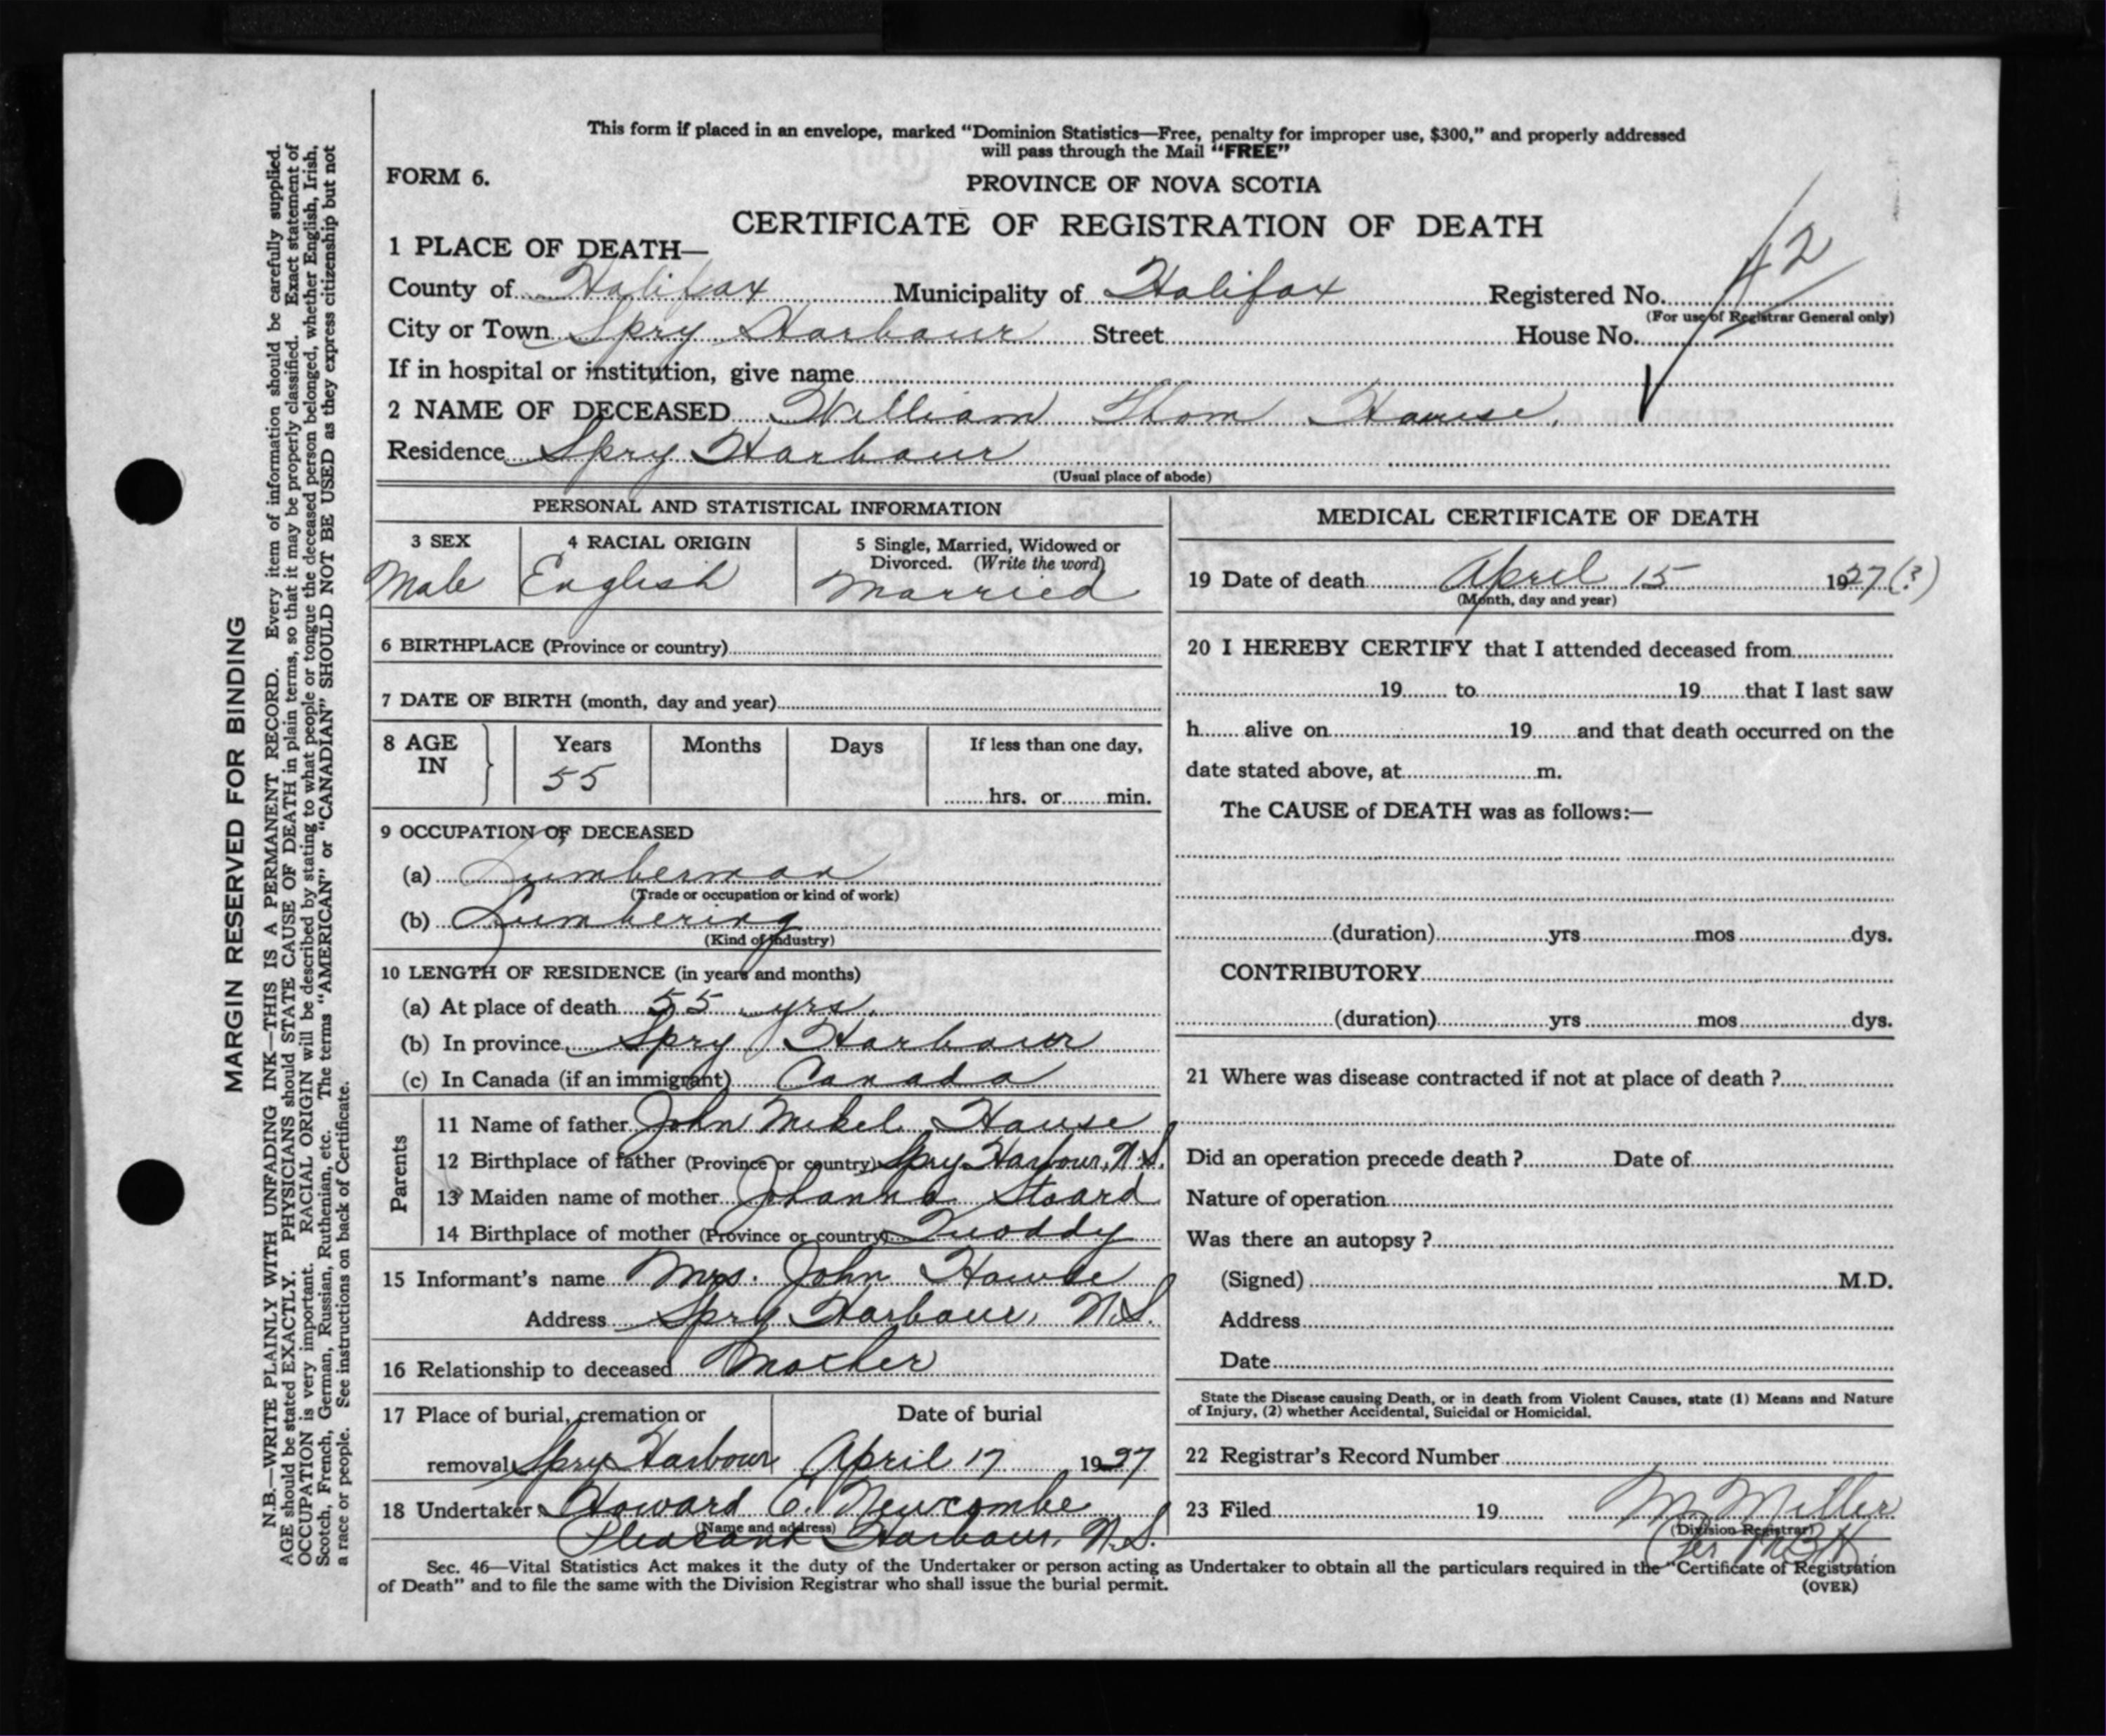 This form if placed in an envelope, marked "Dominion Statistics—Free, penalty for improper use, $300," and properly addressed
will pass through the Mail "FREE"
FORM 6.
PROVINCE OF NOVA SCOTIA
CERTIFICATE OF REGISTRATION OF DEATH
1 PLACE OF DEATH—
County of Halifax Municipality of Halifax Registered No. 42
(For use of Registrar General only)
City or Town Spry Harbour Street House No.
If in hospital or institution, give name
2 NAME OF DECEASED William Thom Hawse,
Residence Spry Harbour
(Usual place of abode)
PERSONAL AND STATISTICAL INFORMATION
3 SEX
Male
4 RACIAL ORIGIN
English
5 Single, Married, Widowed or
Divorced. (Write the word)
Married
6 BIRTHPLACE (Province or country)
7 DATE OF BIRTH (month, day and year)
8 AGE IN
Years Months Days If less than one day,
55 hrs. or min.
9 OCCUPATION OF DECEASED
(a) Lumberman
(Trade or occupation or kind of work)
(b) Lumbering
(Kind of industry)
10 LENGTH OF RESIDENCE (in years and months)
(a) At place of death 55 yrs.
(b) In province Spry Harbour
(c) In Canada (if an immigrant) Canada
Parents
11 Name of father John Mekel Hause
12 Birthplace of father (Province or country) Spry Harbour, N.S.
13 Maiden name of mother Johanna Stoard
14 Birthplace of mother (Province or country) Quoddy
15 Informant's name Mrs. John Hawse
Address Spry Harbour, N.S.
16 Relationship to deceased Mother
17 Place of burial, cremation or Date of burial
removal Spry Harbour April 17 1927
18 Undertaker Howard C. Newcombe
(Name and address)
Pleasant Harbour, N.S.
MEDICAL CERTIFICATE OF DEATH
19 Date of death April 15 1927(?)
(Month, day and year)
20 I HEREBY CERTIFY that I attended deceased from
19 to 19 that I last saw
h alive on 19 and that death occurred on the
date stated above, at m.
The CAUSE of DEATH was as follows:—
(duration) yrs mos dys.
CONTRIBUTORY
(duration) yrs mos dys.
21 Where was disease contracted if not at place of death ?
Did an operation precede death ? Date of
Nature of operation
Was there an autopsy ?
(Signed) M.D.
Address
Date
State the Disease causing Death, or in death from Violent Causes, state (1) Means and Nature
of Injury, (2) whether Accidental, Suicidal or Homicidal.
22 Registrar's Record Number
23 Filed 19 M Miller
(Division Registrar)
Per MBH
Sec. 46—Vital Statistics Act makes it the duty of the Undertaker or person acting as Undertaker to obtain all the particulars required in the "Certificate of Registration
of Death" and to file the same with the Division Registrar who shall issue the burial permit.
(OVER)
MARGIN RESERVED FOR BINDING
N.B.—WRITE PLAINLY WITH UNFADING INK—THIS IS A PERMANENT RECORD. Every item of information should be carefully supplied.
AGE should be stated EXACTLY. PHYSICIANS should STATE CAUSE OF DEATH in plain terms, so that it may be properly classified. Exact statement of
OCCUPATION is very important. RACIAL ORIGIN will be described by stating to what people or tongue the deceased person belonged, whether English, Irish,
Scotch, French, German, Russian, Ruthenian, etc. The terms "AMERICAN" or "CANADIAN" SHOULD NOT BE USED as they express citizenship but not
a race or people. See instructions on back of Certificate.